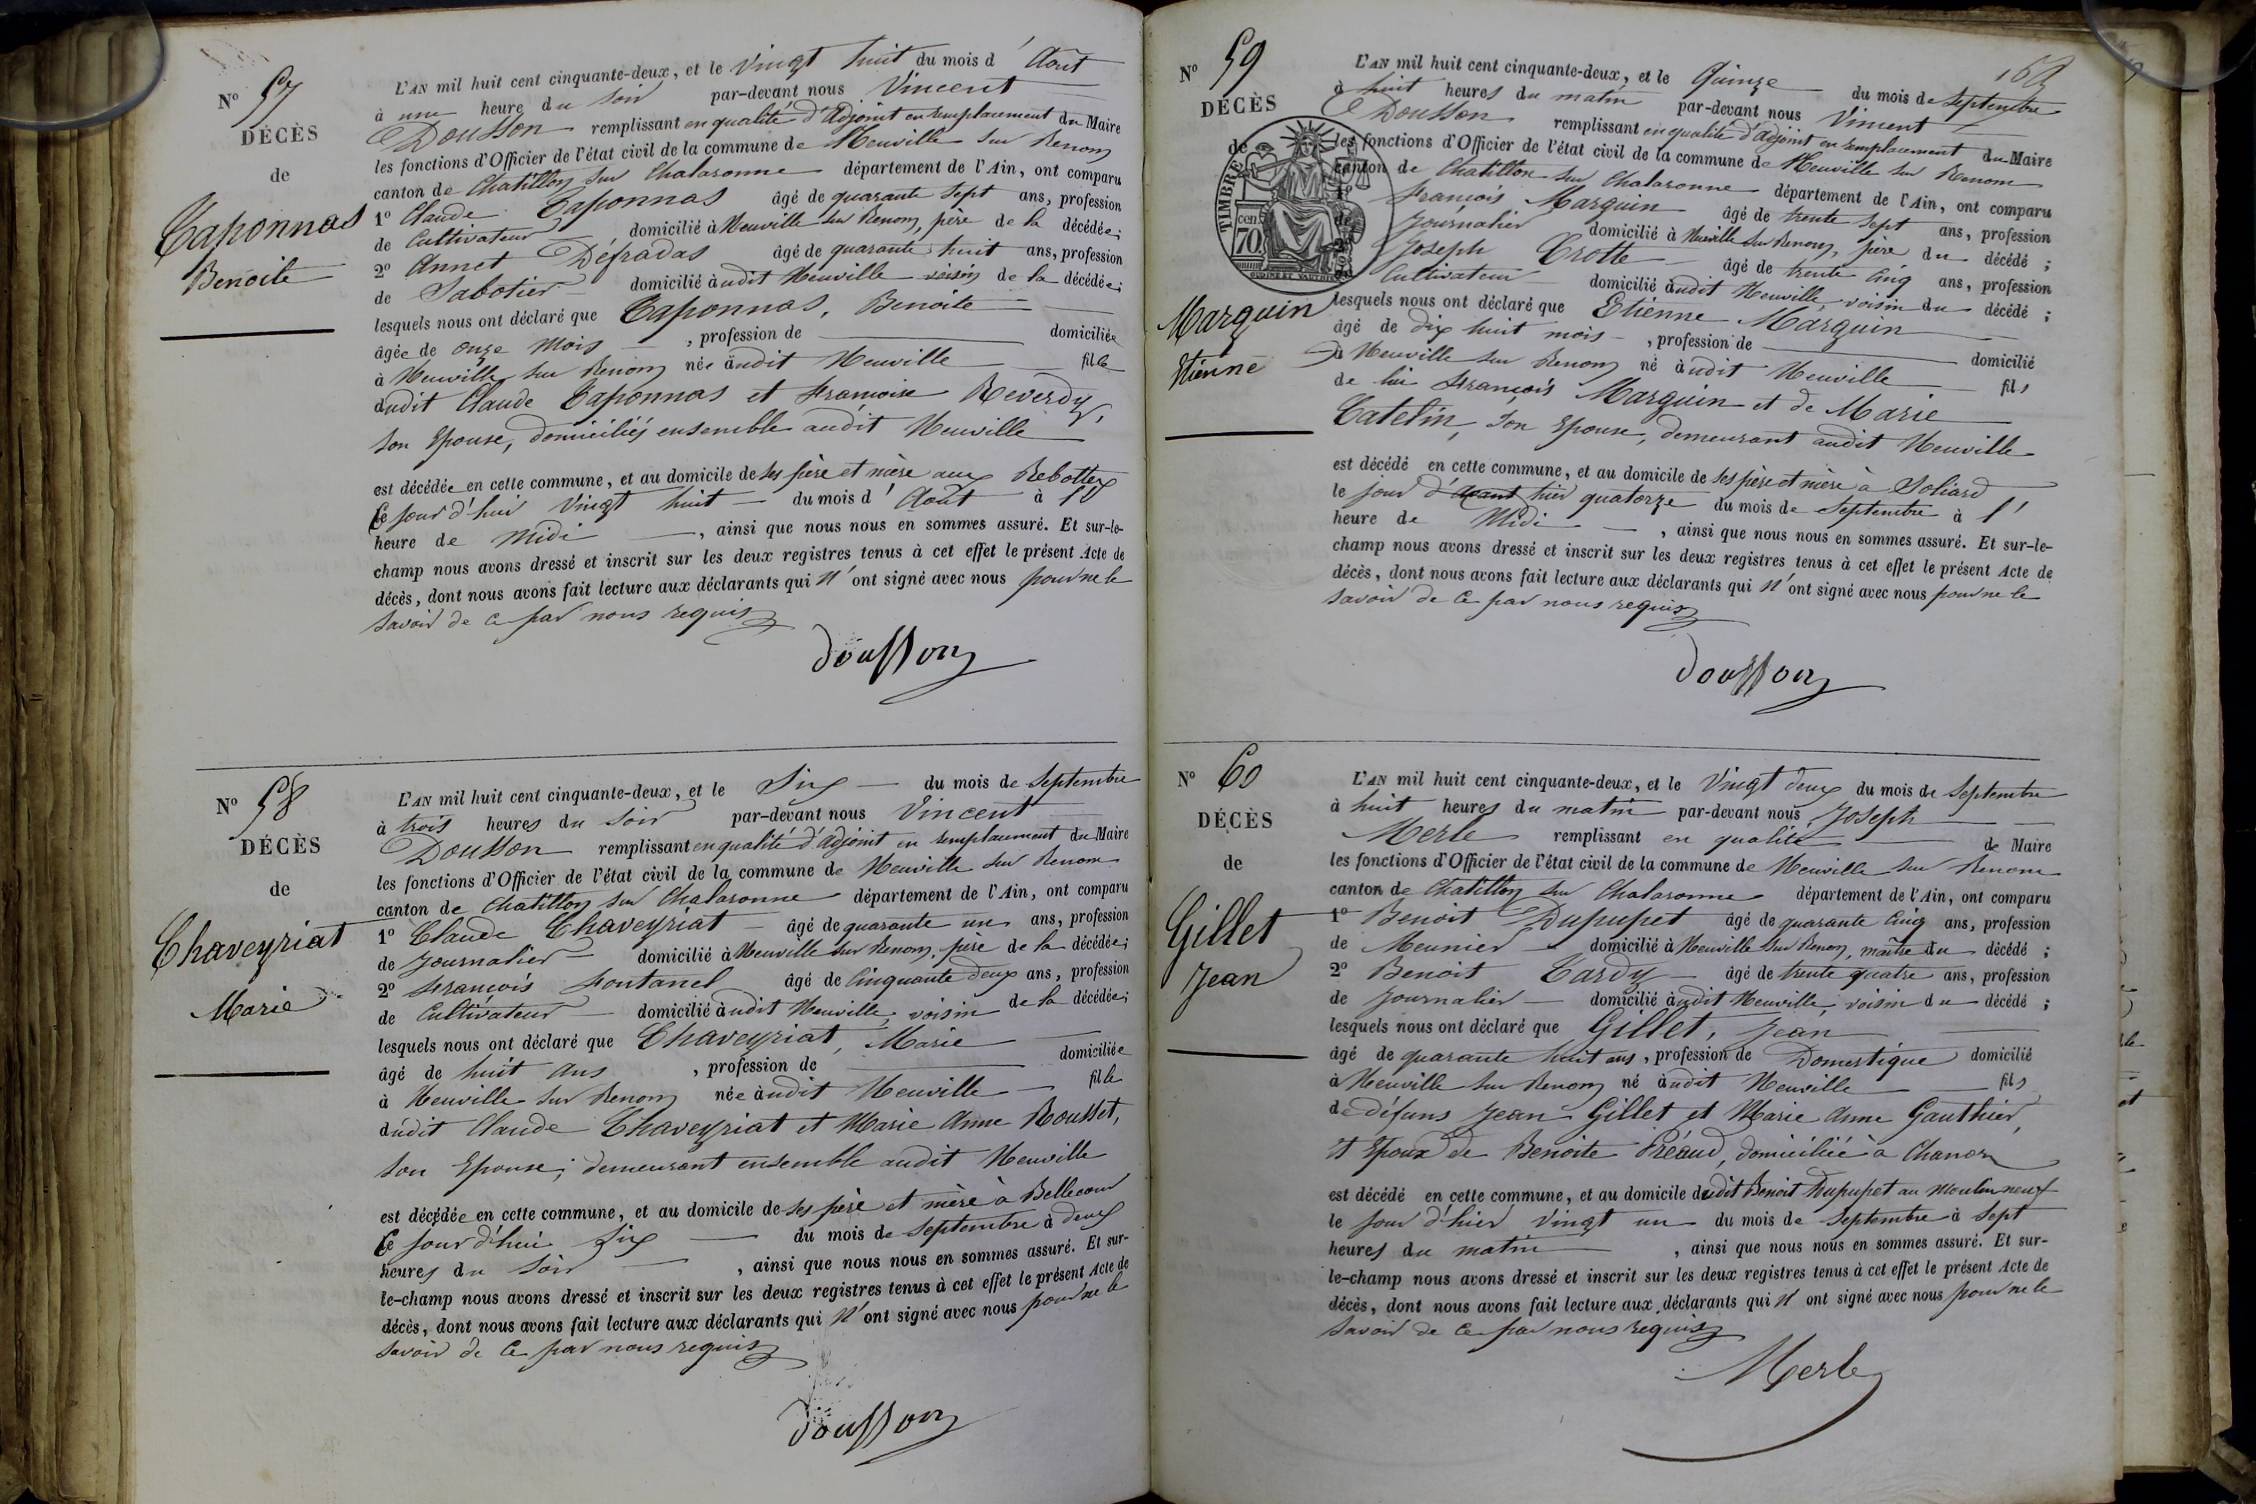 N° 57
DÉCÈS
de
Caponnas
Benoite
L'AN mil huit cent cinquante-deux, et le vingt huit du mois d'Août
à une heure du soir par-devant nous Vincent
Dousson remplissant en qualité d'Adjoint en remplacement du Maire
les fonctions d'Officier de l'état civil de la commune de Neuville sur Renom
canton de Chatillon sur Chalaronne département de l'Ain, ont comparu
1° Claude Caponnas âgé de quarante sept ans, profession
de Cultivateur domicilié à Neuville sur Renom, père de la décédée;
2° Annet Défradas âgé de quarante huit ans, profession
de Sabotier domicilié audit Neuville voisin de la décédée;
lesquels nous ont déclaré que Caponnas, Benoite
âgée de onze mois , profession de domiciliée
à Neuville sur Renom née audit Neuville fille
dudit Claude Caponnas et Francoise Reverdy,
son Epouse, domiciliés ensemble audit Neuville
est décédée en cette commune, et au domicile de ses père et mère aux Rebottex
Ce jour d'hui vingt huit du mois d'Août à l'
heure de midi , ainsi que nous nous en sommes assuré. Et sur-le-
champ nous avons dressé et inscrit sur les deux registres tenus à cet effet le présent Acte de
décès, dont nous avons fait lecture aux déclarants qui n'ont signé avec nous pour ne le
savoir de ce par nous requis
Dousson
N° 58
DÉCÈS
de
Chaveyriat
Marie
L'AN mil huit cent cinquante-deux, et le Six du mois de Septembre
à trois heures du soir par-devant nous Vincent
Dousson remplissant en qualité d'adjoint en remplacement du Maire
les fonctions d'Officier de l'état civil de la commune de Neuville sur Renom
canton de Chatillon sur Chalaronne département de l'Ain, ont comparu
1° Claude Chaveyriat âgé de quarante un ans, profession
de Journalier domicilié à Neuville sur Renom, père de la décédée;
2° François Fontanel âgé de Cinquante deux ans, profession
de Cultivateur domicilié audit Neuville, voisin de la décédée;
lesquels nous ont déclaré que Chaveyriat, Marie
âgé de huit ans , profession de domiciliée
à Neuville sur Renom née audit Neuville fille
dudit Claude Chaveyriat et Marie Anne Rousset,
son Epouse; demeurant ensemble audit Neuville
est décédée en cette commune, et au domicile de ses père et mère à Bellecour
Ce jour d'hui six du mois de Septembre à deux
heures du soir , ainsi que nous nous en sommes assuré. Et sur-
le-champ nous avons dressé et inscrit sur les deux registres tenus à cet effet le présent Acte de
décès, dont nous avons fait lecture aux déclarants qui n'ont signé avec nous pour ne le
savoir de ce par nous requis
Dousson
N° 59
DÉCÈS
de
TIMBRE
cen
70
Marguin
Etienne
L'AN mil huit cent cinquante-deux, et le Quinze du mois de Septembre
à huit heures du matin par-devant nous Vincent
Dousson remplissant en qualité d'adjoint en remplacement du Maire
les fonctions d'Officier de l'état civil de la commune de Neuville sur Renom
canton de Chatillon sur Chalaronne département de l'Ain, ont comparu
François Marguin âgé de trente sept ans, profession
de Journalier domicilié à Neuville sur Renom, père du décédé;
Joseph Crotte âgé de trente Cinq ans, profession
Cultivateur domicilié audit Neuville, voisin du décédé;
lesquels nous ont déclaré que Etienne Marguin
âgé de dix huit mois , profession de domicilié
à Neuville sur Renom né audit Neuville fils
de lui François Marguin et de Marie
Catelin, son Epouse, demeurant audit Neuville
est décédé en cette commune, et au domicile de ses père et mère à Soliard
le jour d'avant hier quatorze du mois de Septembre à l'
heure de Midi , ainsi que nous nous en sommes assuré. Et sur-le-
champ nous avons dressé et inscrit sur les deux registres tenus à cet effet le présent Acte de
décès, dont nous avons fait lecture aux déclarants qui n'ont signé avec nous pour ne le
savoir de ce par nous requis
Dousson
N° 60
DÉCÈS
de
Gillet
Jean
L'AN mil huit cent cinquante-deux, et le Vingt deux du mois de Septembre
à huit heures du matin par-devant nous Joseph
Merle remplissant en qualité de Maire
les fonctions d'Officier de l'état civil de la commune de Neuville sur Renom
canton de Chatillon sur Chalaronne département de l'Ain, ont comparu
1° Benoit Dupupet âgé de quarante Cinq ans, profession
de Meunier domicilié à Neuville sur Renom, maître du décédé;
2° Benoit Cardy âgé de trente quatre ans, profession
de Journalier domicilié audit Neuville, voisin du décédé;
lesquels nous ont déclaré que Gillet, Jean
âgé de quarante huit ans, profession de Domestique domicilié
à Neuville sur Renom né audit Neuville fils
de défuns Jean Gillet et Marie Anne Gauthier,
et Epoux de Benoite Préaud, domiciliée à Chanoz
est décédé en cette commune, et au domicile dudit Benoit Dupupet au Moulin neuf
le jour d'hier vingt un du mois de Septembre à sept
heures du matin , ainsi que nous nous en sommes assuré. Et sur-
le-champ nous avons dressé et inscrit sur les deux registres tenus à cet effet le présent Acte de
décès, dont nous avons fait lecture aux déclarants qui n'ont signé avec nous pour ne le
savoir de ce par nous requis
Merle